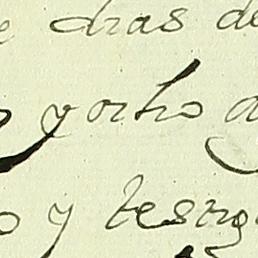 e dras de
y ocho d
o y testig